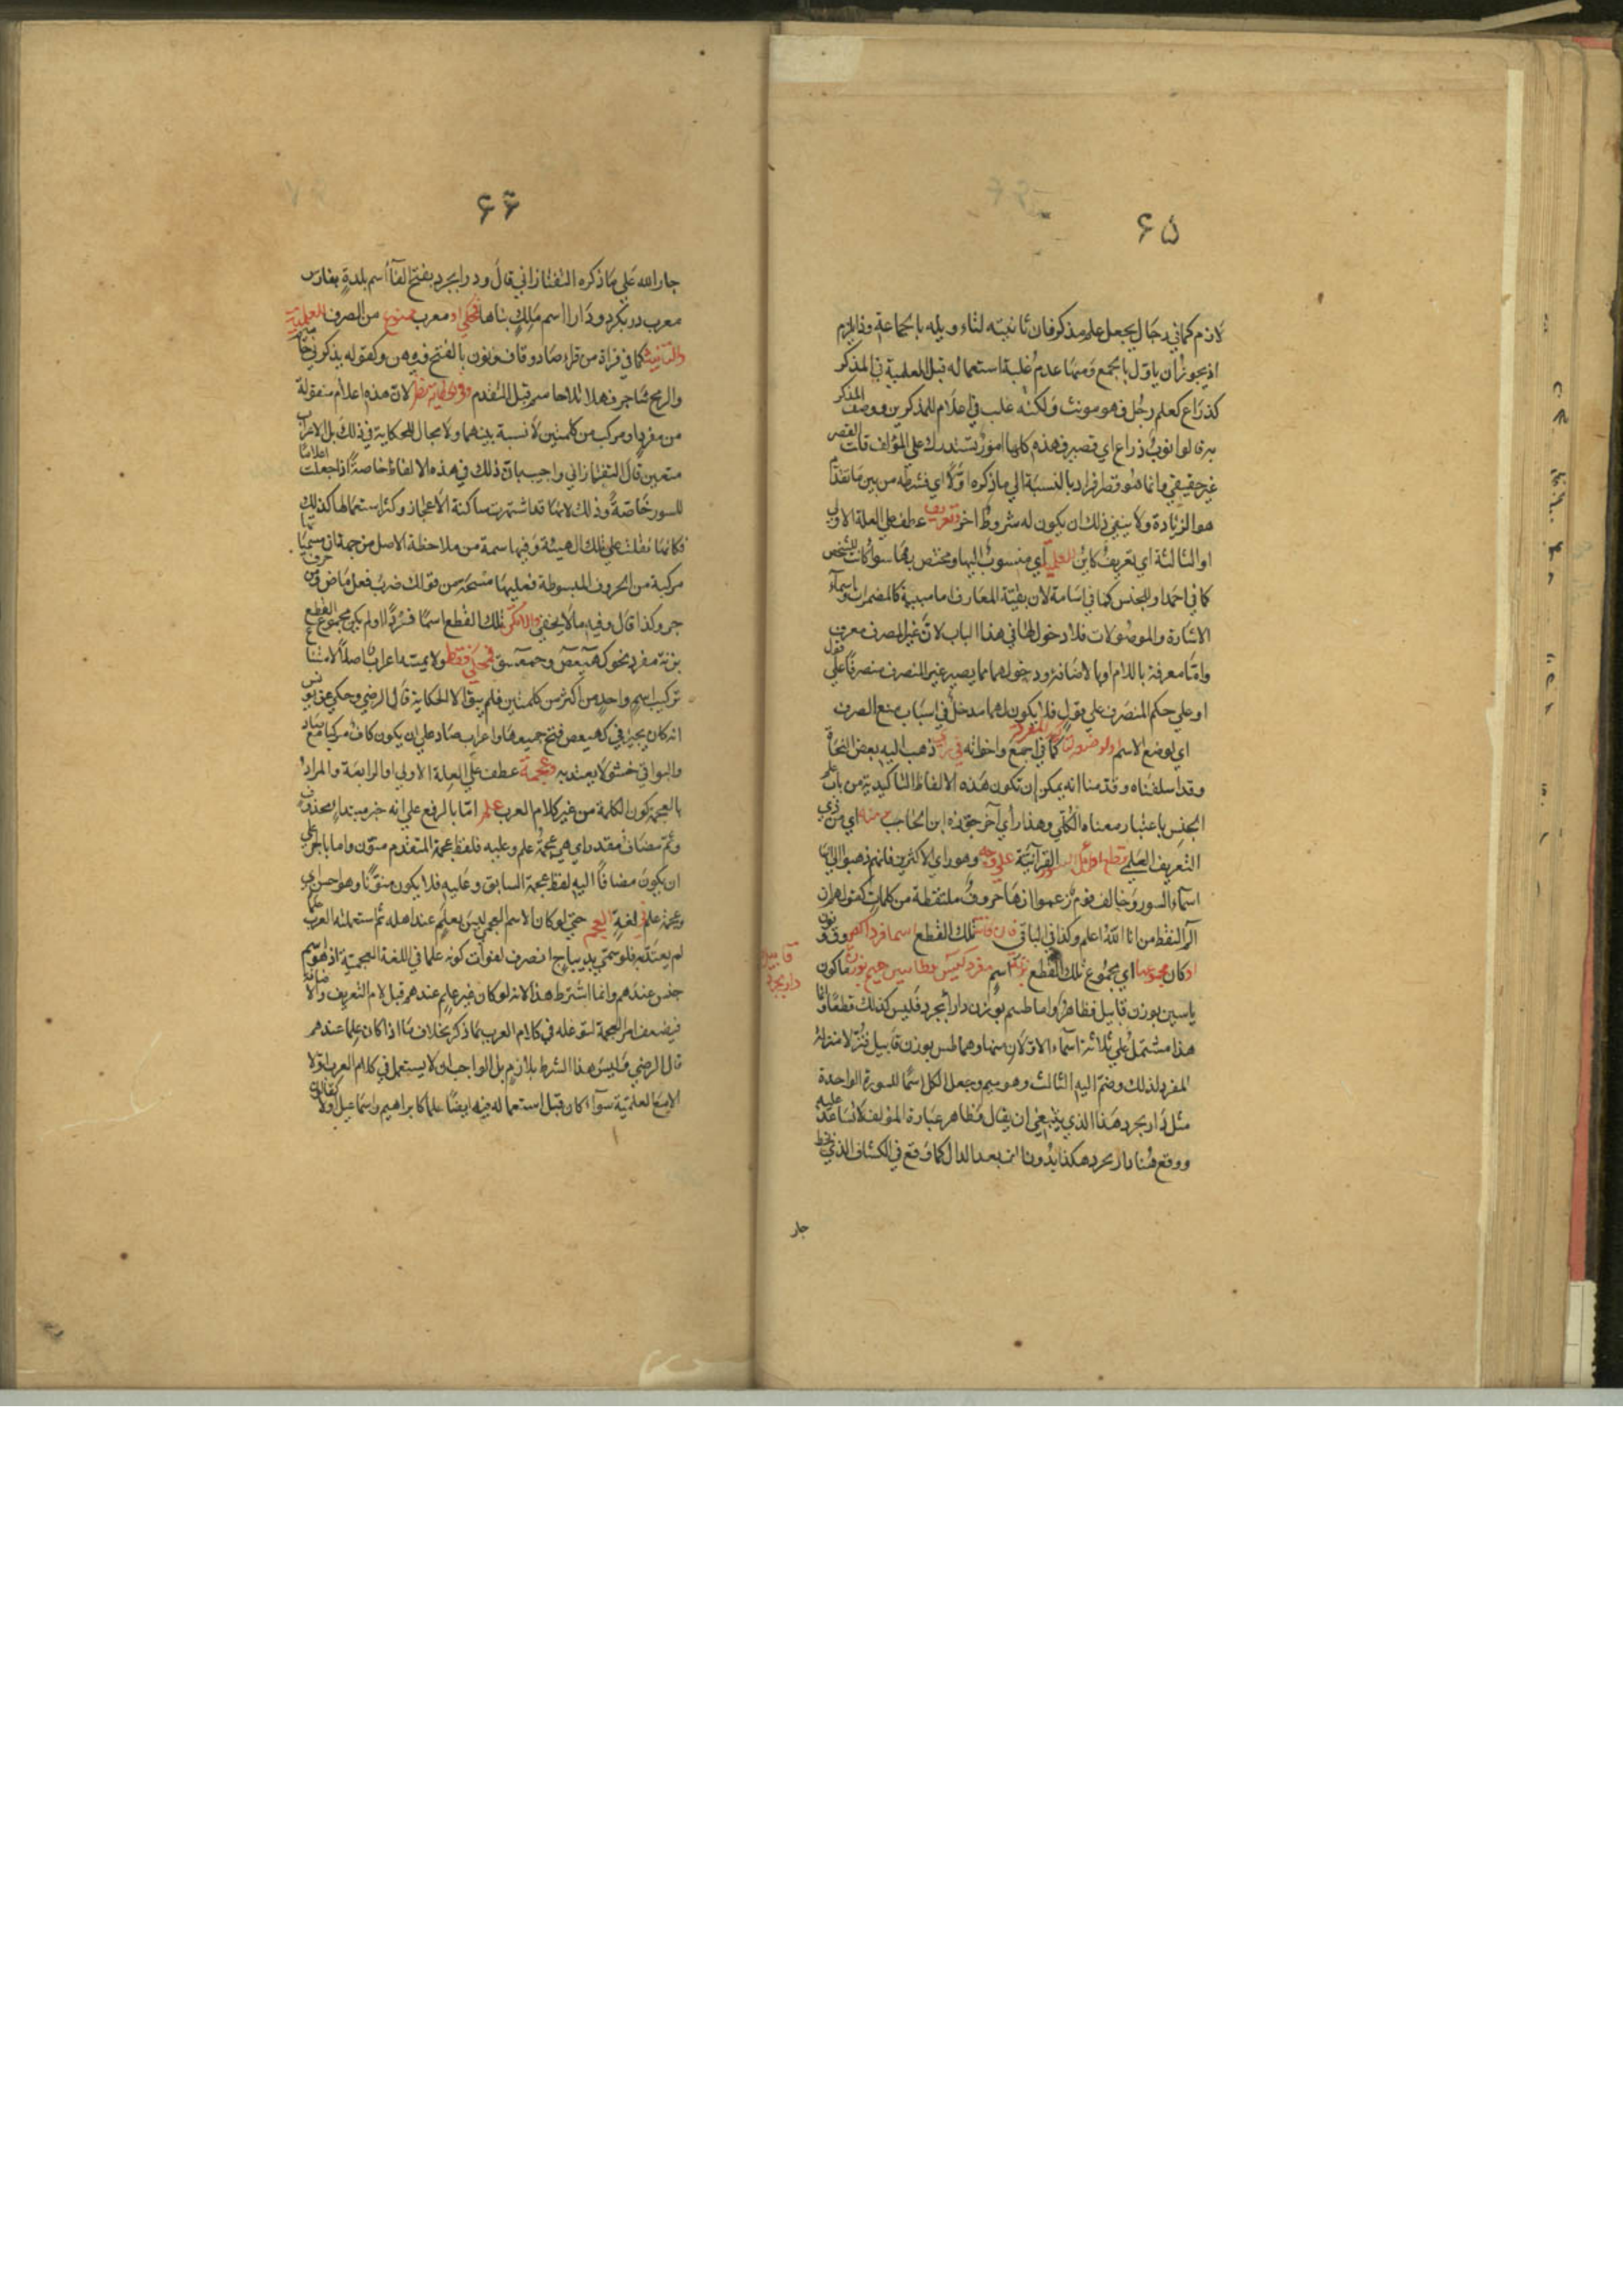 ٦٥
لازم كما في رجال يجعل علم مذكر فان تانيثه لتاويله باجماعة وذا يلزم
اذ يجوز ان ياول بالجمع ومنها عدم غلبة استعماله قبل العلمية في المذكر
كذراع كعلم رجل فهو مونث ولكنه غلب في اعلام المذكرين ووصف المذكر
به قالوا ثوب ذراع اي قصير فهذه كلها امور تستدرك على المؤلف قلت القصر
غير حقيقي وانما هو قصر افراد بالنسبة الي ما ذكره اولا اي فشرطه من بين ما تقدم
هو الزيادة ولا ينفي ذلك ان يكون له شروط اخر وتعريف عطف علي العلة الاولي
او الثالثة اي تعريف كاين للعلمية اي منسوب اليها ومختص بها سوا كانت للشخص
كما في احمد او للجنس كما في اسامة لان بقية المعارف اما مبنية كالمضمرات واسماء
الاشارة والموصولات فلا دخول لها في هذا الباب لان غير المصرف معرب
واما معرفة باللام او بالاضافة ودخولهما مما يصير غير المنصرف منصرفا علي قول
او علي حكم المنصرف علي قول فلا يكون لهما مدخل في اسباب منع الصرف
اي لوضع الاسم كما في اجمع واخواته ذهب اليه بعض النحاة
وقد اسلفناه وقدمنا انه يمكن ان تكون هذه الالفاظ التاكيدية من باب علم
الجنس باعتبار معناه الكلي وهذا راي آخر جوزه ابن الحاجب منه اي من ذي
التعريف العلمي قطع اوائل السور القرآنية علي وجه وهو راي الاكثرين فانهم ذهبوا الي انها
اسماء السور وخالف قوم زعموا انها حروف ملتقطة من كلمات كقولهم ان
الم التقط من انا الله اعلم وكذا في الباقي فان كانت تلك القطع اسما فردا كص وق ون
او كان مجموعها اي مجموع تلك القطع بزنة اسم مفرد كيس وطاسين حميم بوزن ما كون
ياسين بوزن قابيل فظاهر واما طسم بوزن دارابجرد فليس كذلك قطعا وانما
هذا مشتمل علي ثلاثة اسماء الاولان منها وهما طس بوزن قابيل فنزلا منزلة
المفرد لذلك وضم اليه الثالث وهو ميم وجعل الكل اسما للسورة الواحدة
مثل دارابجرد هذا الذي ينبغي ان يقال وظاهر عبارة المؤلف لا تساعد عليه
ووقع هنا دارابجرد هكذا بدون الف بعد الدال كما وقع في الكشاف الذي بخط
جار
قابيل
دارابجرد
٦٦
جار الله علي ما ذكره التفتازاني قال ودرابجرد بفتح الفاء اسم بلدة بفارس
معرب درابكرد ودارا اسم ملك بناها فمحكي او معرب ممنوع من الصرف للعلمية
والتانيث كما في قراة من قراء صاد وقاف ونون بالفتح فيهن وكقوله يذكرني حاميم
والرمح شاجر فهلا تلا حاميم قبل التقدم وفي الحكاية نظر لان هذه اعلام منقولة
من مفرد او مركب من كلمتين لا نسبة بينهما ولا مجال للحكاية في ذلك بل الاعراب
متعين قال التفتازاني واجيب بان ذلك في هذه الالفاظ خاصة اذا جعلت اعلاما
للسور خاصة وذلك لانها قد اشتهرت ساكنة الاعجاز وكثر استعمالها كذلك
فكانها نقلت علي تلك الهيئة وفيها سمة من ملاحظة الاصل من جهة ان مسمياتها
مركبة من الحروف المبسوطة فعليها مسحة من قولك ضرب فعل ماض ومن حرف
جر وكذا قال وفيه ما لا يخفي والا تكن تلك القطع اسما فردا او لم يكن مجموع القطع
بزنة مفرد نحو كهيعص وحمعسق فمحكي فقط ولا يمسه اعراب اصلا لامتناع
تركيب اسم واحد من اكثر من كلمتين فلم يبق الا الحكاية قال الرضي وحكي عن يونس
انه كان يجيز في كهيعص فتح جميعها واعراب صاد علي ان يكون كاف مركبا مع صاد
والبواقي حشو لا يعتد به وعجمة عطف علي العلة الاولي او الرابعة والمراد
بالعجمة كون الكلمة من غير كلام العرب علم اما بالرفع علي انه خبر مبتدا محذوف
وثم مضاف مقدر اي هي عجمة علم وعليه فلفظ عجمة المتقدم منون واما بالجر علي
ان يكون مضافا اليه لفظ عجمة السابق وعليه فلا يكون منونا وهو احسن اي
وعجمة علم في لغة العجم حتي لو كان الاسم العجمي ليس بعلم عند اهله ثم استعملته العرب علما
لم يعتد به فلو سمي بديباج انصرف لفوات كونه علما في اللغة العجمية اذ هو اسم
جنس عندهم وانما اشترط هذا لانه لو كان غير علم عندهم قبل لام التعريف والاضافة
فيضعف امر العجمة لتوغله في كلام العرب بما ذكر بخلاف ما اذا كان علما عندهم
قال الرضي وليس هذا الشرط بلازم بل الواجب ان لا يستعمل في كلام العرب اولا
الا مع العلمية سواء كان قبل استعماله فيه ايضا علما كابراهيم واسماعيل اولا كقالون